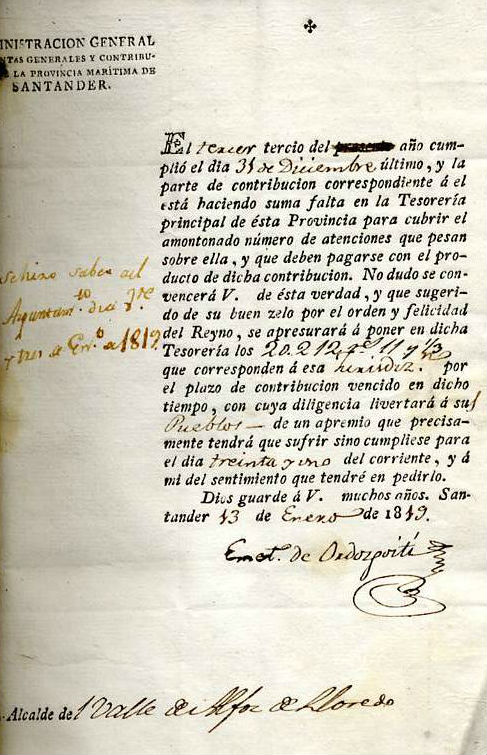 ✤
NISTRACION GENERAL
NTAS GENERALES Y CONTRIBU-
E LA PROVINCIA MARÍTIMA DE
SANTANDER.
El tercer tercio del presente año cum-
plió el dia 31 de Diciembre último, y la
parte de contribucion correspondiente á el
está haciendo suma falta en la Tesorería
principal de ésta Provincia para cubrir el
amontonado número de atenciones que pesan
sobre ella, y que deben pagarse con el pro-
ducto de dicha contribucion. No dudo se con-
vencerá V. de ésta verdad, y que sugeri-
do de su buen zelo por el orden y felicidad
del Reyno, se apresurará á poner en dicha
Tesorería los 20.212 11 y 1/3
que corresponden á esa por
el plazo de contribucion vencido en dicho
tiempo, con cuya diligencia livertará á sus
Pueblos de un apremio que precisa-
mente tendrá que sufrir sino cumpliese para
el dia treinta y uno del corriente, y á
mi del sentimiento que tendré en pedirlo.
Dios guarde á V. muchos años. San-
tander 13 de Enero de 1819.
Emet.º de
Se hizo saber al
Ayuntam.to dia
y tres de En.º de 1819
Alcalde del Valle de Alfoz de Lloredo